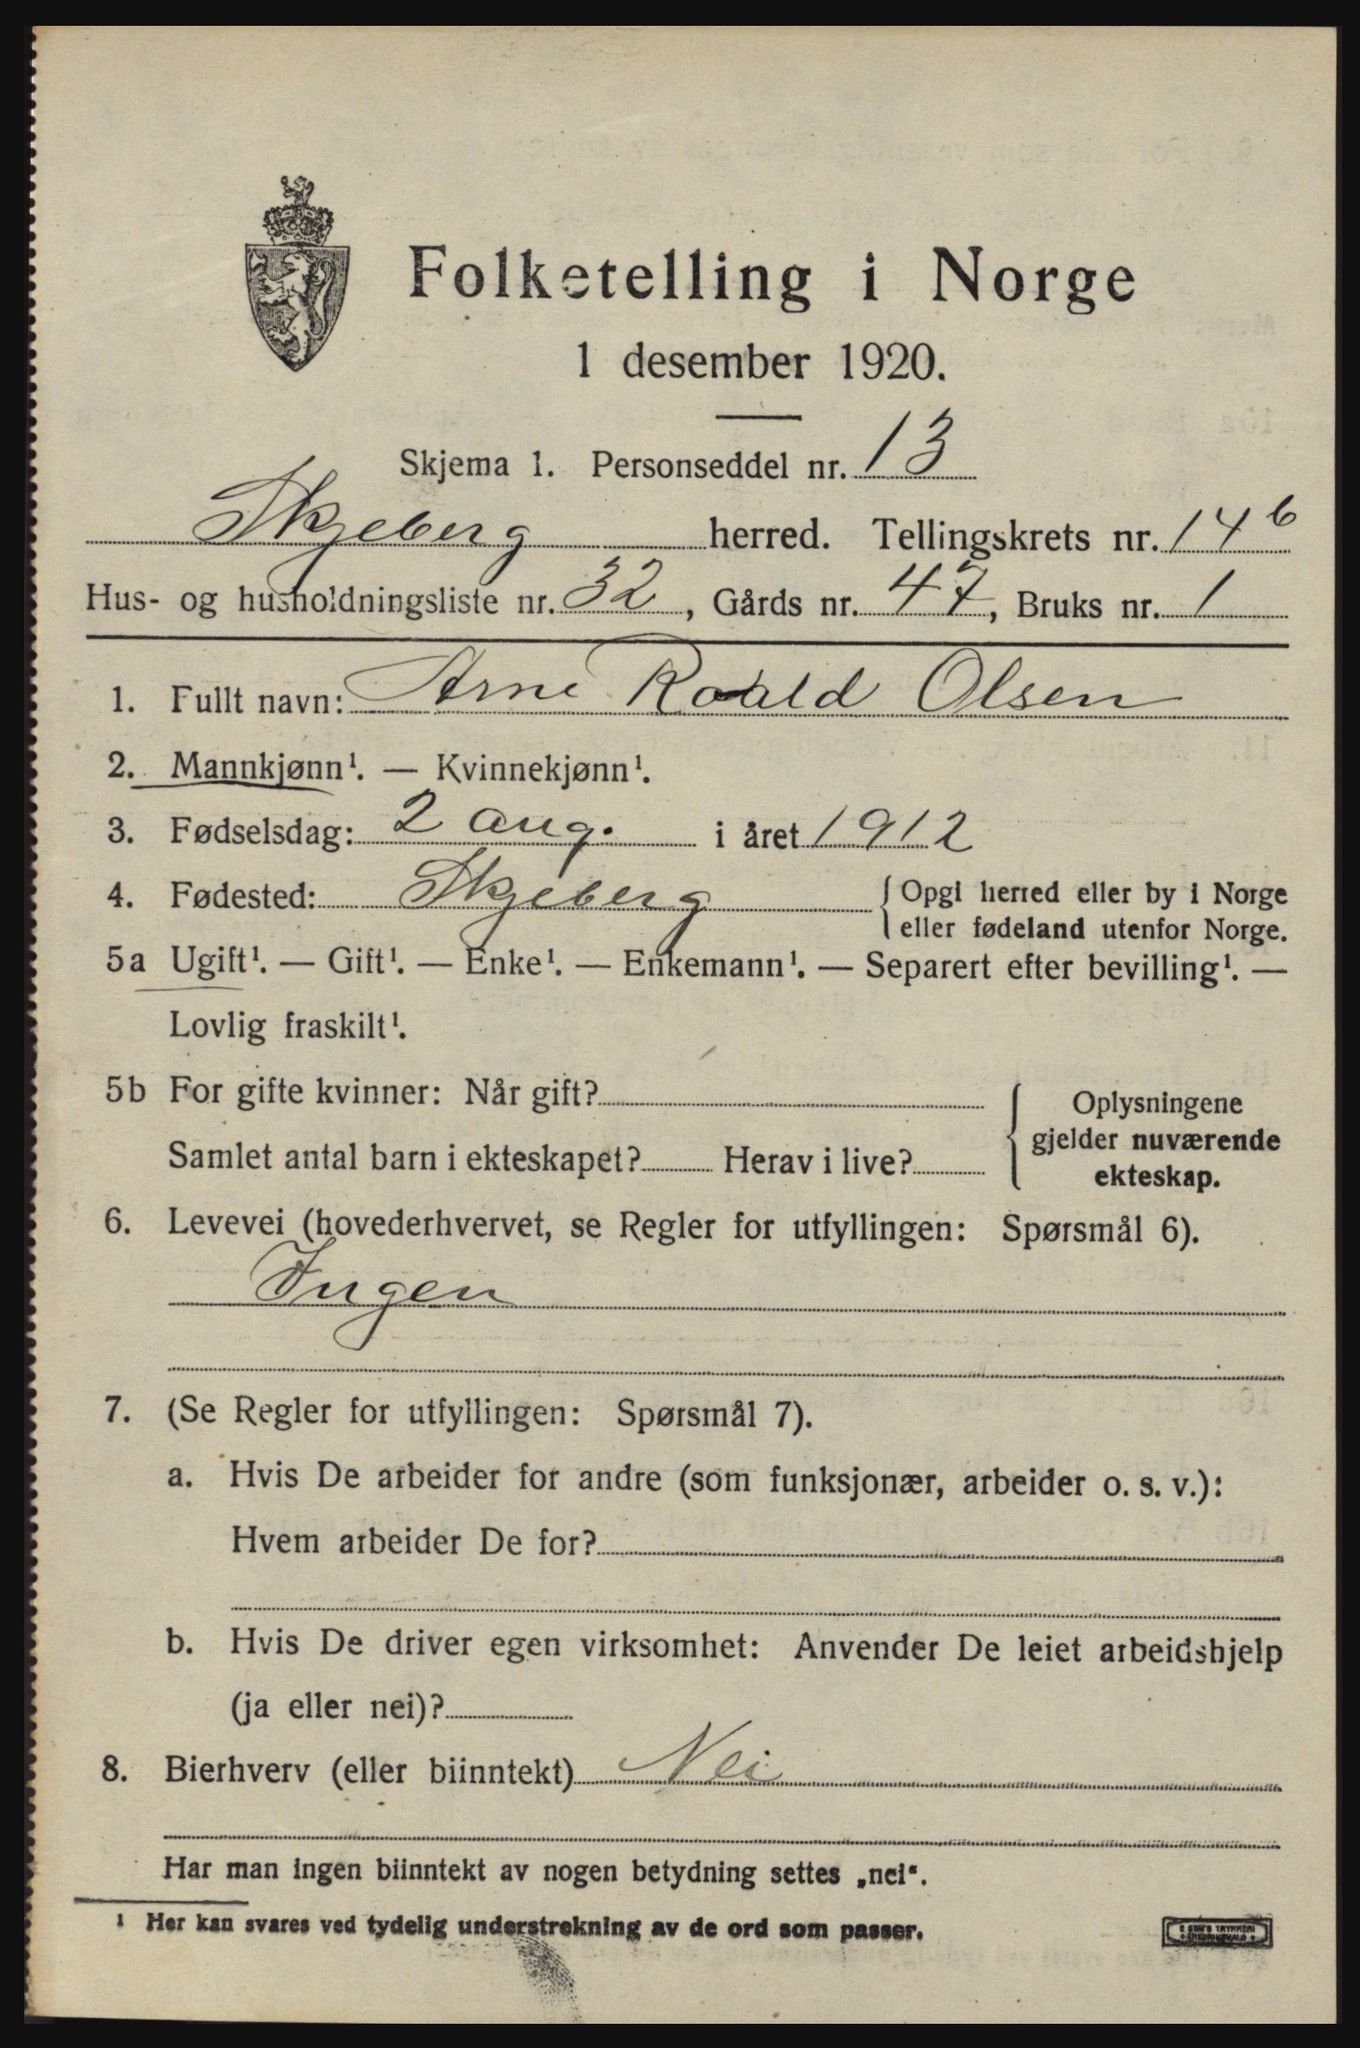 Folketelling i Norge
1 desember 1920.
Skjema 1. Personseddel nr. 13
Skjeberg herred. Tellingskrets nr. 14 b
Hus- og husholdningsliste nr. 32, Gårds nr. 47, Bruks nr. 1
1. Fullt navn: Arne Roald Olsen
2. Mannkjønn¹. — Kvinnekjønn¹.
3. Fødselsdag: 2 aug. i året 1912
4. Fødested: Skjeberg { Opgi herred eller by i Norge
eller fødeland utenfor Norge.
5a Ugift¹. — Gift¹. — Enke¹. — Enkemann¹. — Separert efter bevilling¹. —
Lovlig fraskilt¹.
5b For gifte kvinner: Når gift?
Samlet antal barn i ekteskapet? Herav i live?
{ Oplysningene
gjelder nuværende
ekteskap.
6. Levevei (hovederhvervet, se Regler for utfyllingen: Spørsmål 6).
Ingen
7. (Se Regler for utfyllingen: Spørsmål 7).
a. Hvis De arbeider for andre (som funksjonær, arbeider o. s. v.):
Hvem arbeider De for?
b. Hvis De driver egen virksomhet: Anvender De leiet arbeidshjelp
(ja eller nei)?
8. Bierhverv (eller biinntekt) Nei
Har man ingen biinntekt av nogen betydning settes „nei“.
¹ Her kan svares ved tydelig understrekning av de ord som passer.